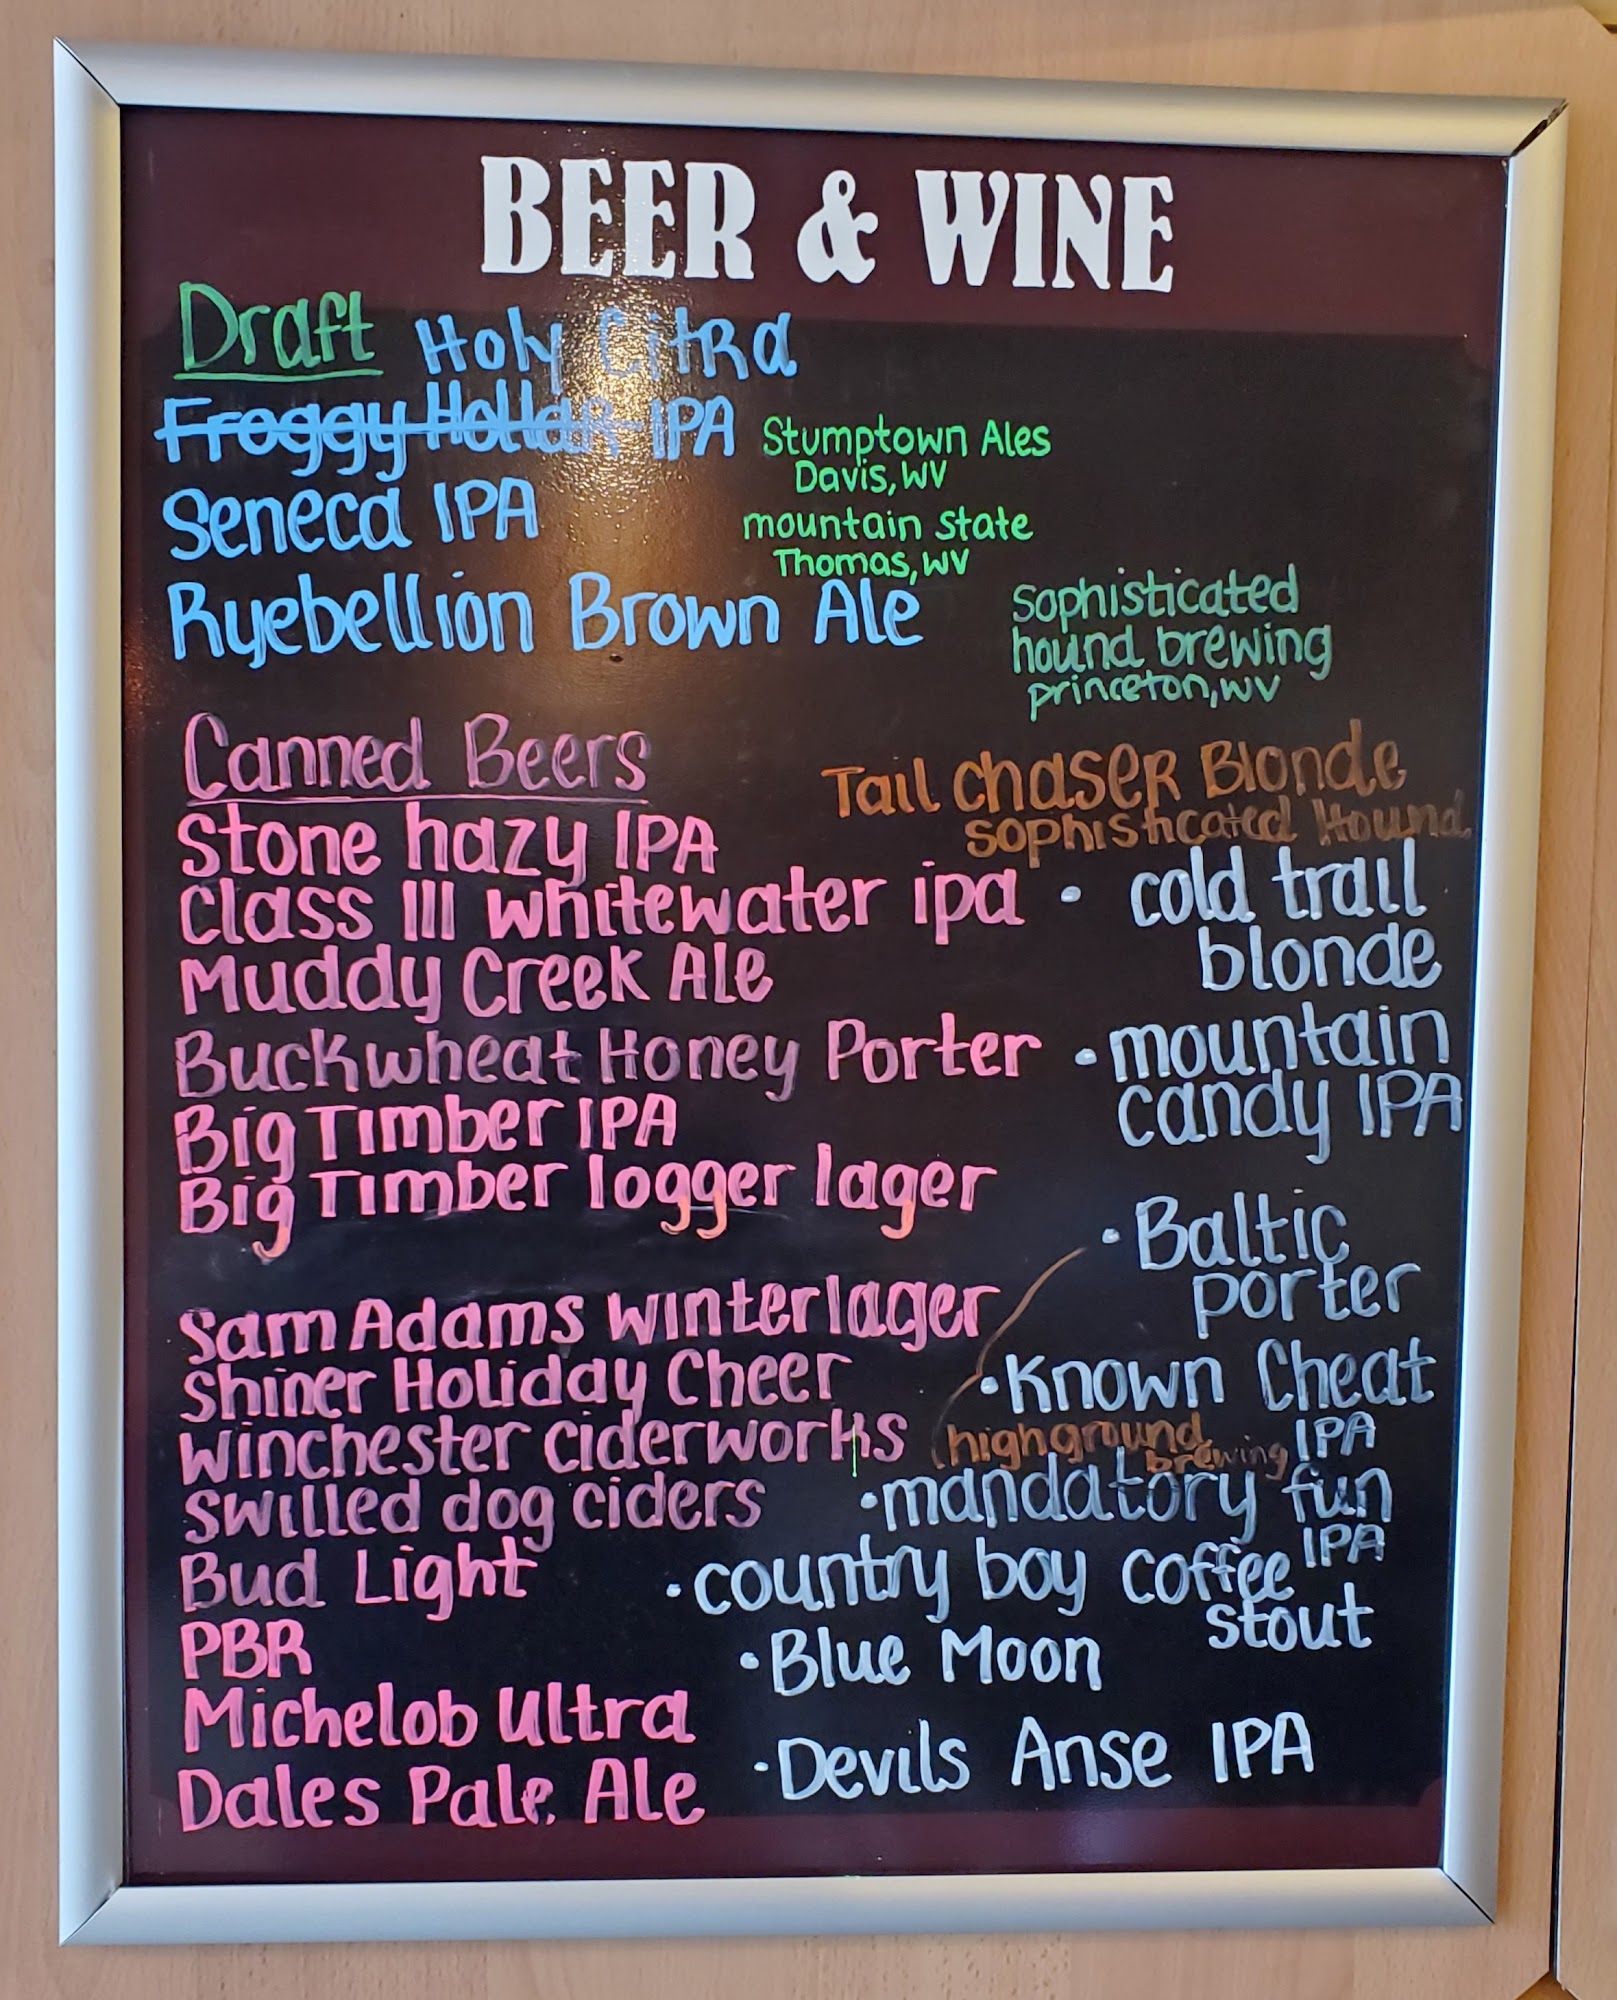 BEER & WINE
Draft Holy Citra
Froggy Hollar IPA
Stumptown Ales
Davis, WV
Seneca IPA
mountain state
Thomas, WV
Ryebellion Brown Ale
Sophisticated
hound brewing
princeton, WV
Canned Beers
Stone hazy IPA
Class III whitewater ipa
Muddy Creek Ale
Buckwheat Honey Porter
Big Timber IPA
Big Timber logger lager
Sam Adams winter lager
Shiner Holiday Cheer
Winchester ciderworks
Swilled dog ciders
Bud Light
PBR
Michelob Ultra
Dales Pale Ale
Tail Chaser Blonde
Sophisticated Hound
• cold trail
blonde
• mountain
candy IPA
• Baltic
porter
• Known Cheat
IPA
highground
brewing
• mandatory fun
IPA
• country boy coffee
stout
• Blue Moon
• Devils Anse IPA